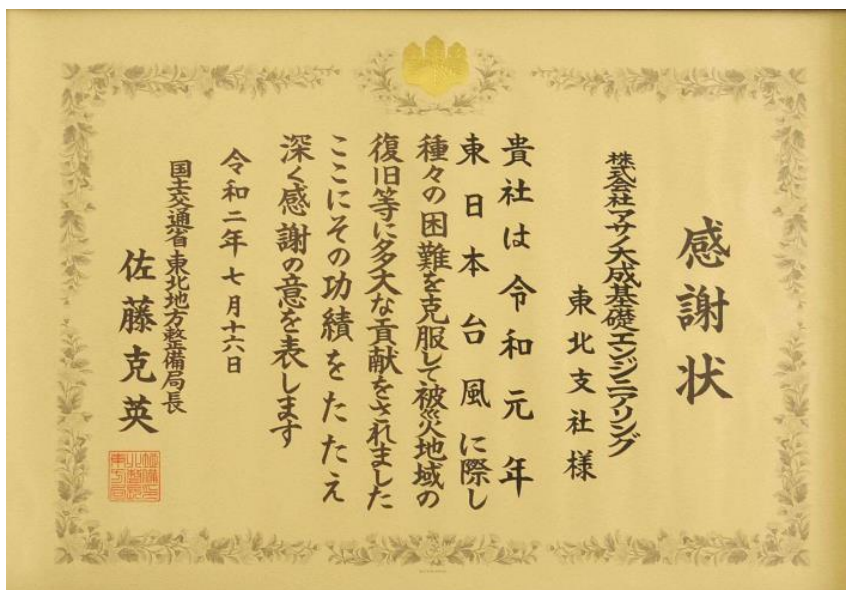 感謝状
株式会社アサノ大成基礎エンジニアリング
東北支社様
貴社は令和元年
東日本台風に際し
種々の困難を克服して被災地域の
復旧等に多大な貢献をされました
ここにその功績をたたえ
深く感謝の意を表します
令和二年七月十六日
国土交通省東北地方整備局長
佐藤克英